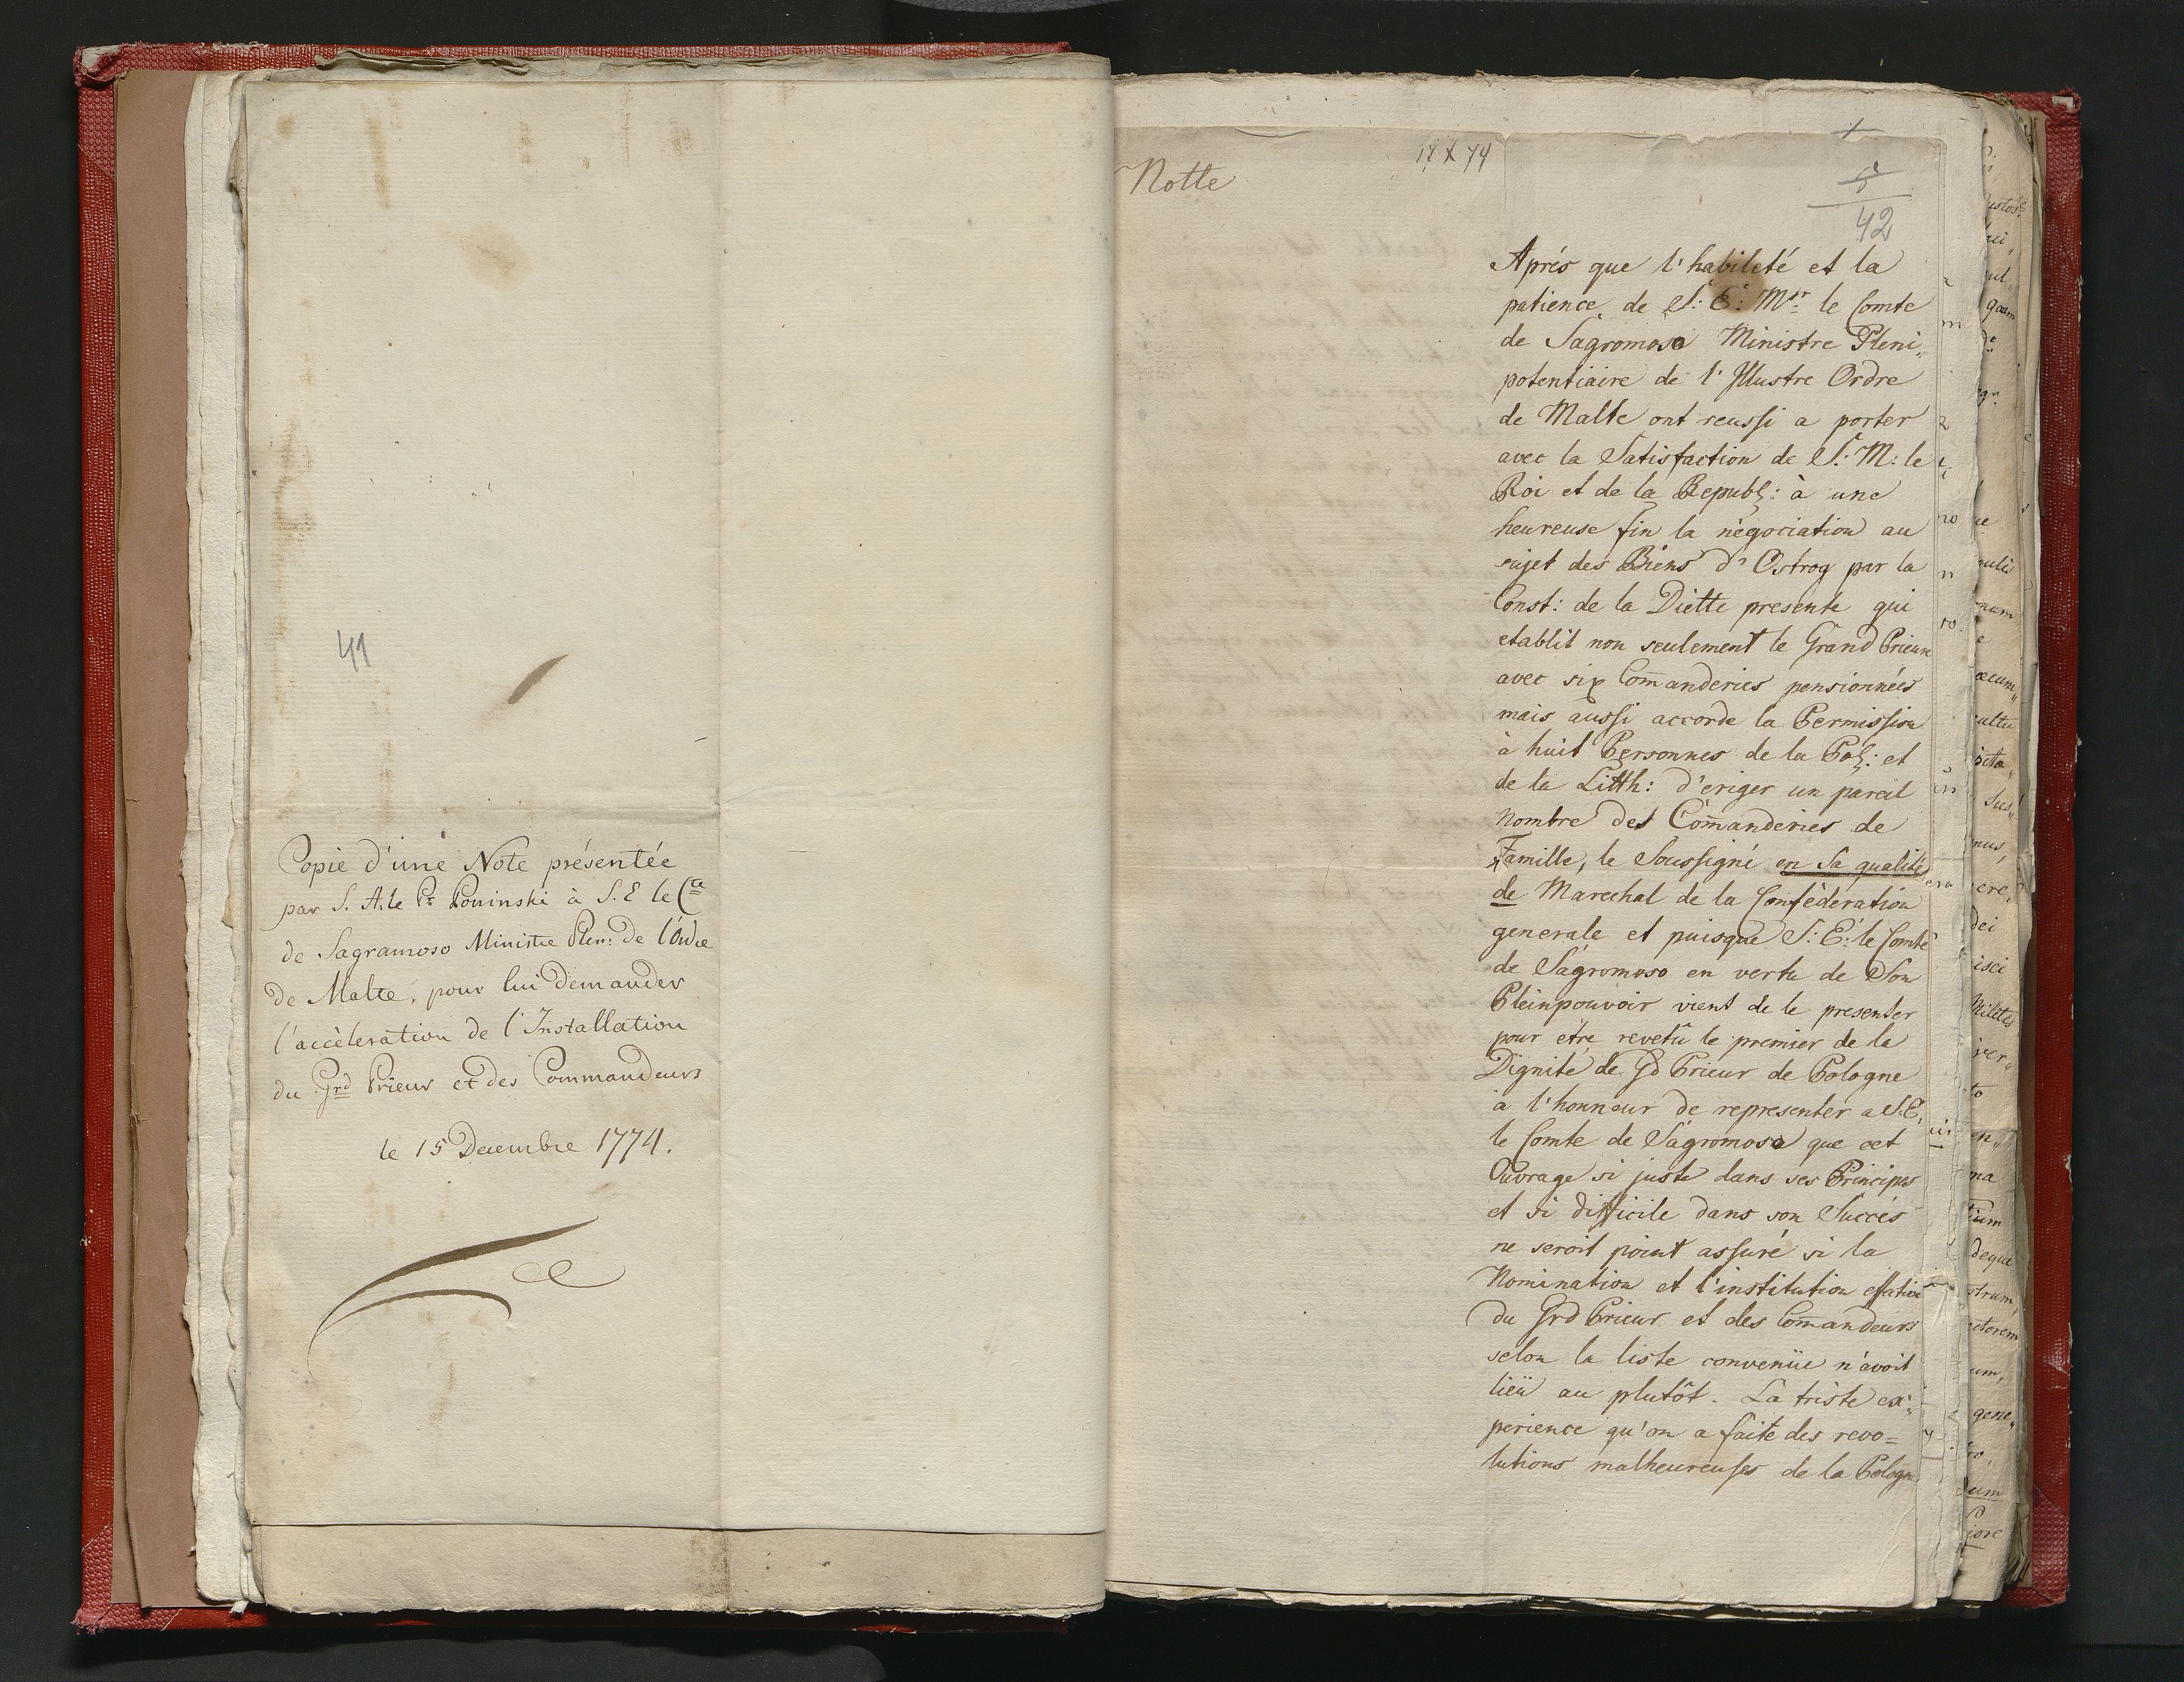 41
Copie d'une Note présentée
par S. A. le Pce Poninski à S. E le Cte
de Sagramoso Ministre Plen: de l'Ordre
de Malte, pour lui demander
l'accèleration de l'Installation
du Grd Prieur et des Commandeurs
le 15 Decembre 1774.
Notte
42
Aprés que l'habileté et la
patience de S: E: Msr le Comte
de Sagromoso Ministre Pleni„
potentiaire de l'Illustre Ordre
de Malte ont reussi a porter
avec la Satisfaction de S: M: le
Roi et de la Republ: à une
heureuse fin la nègociation au
sujet des Biens d'Ostrog par la
Const: de la Diette presente qui
etablit non seulement le Grand Prieuré
avec six Com̄anderies pensionnées
mais aussi accorde la Permission
à huit Personnes de la Pol: et
de la Litth: d'eriger un pareil
Nombre des Com̄anderies de
Famille, le Soussigné en Sa qualité
de Marechal de la Confèderation
generale et puisque S: E: le Comte
de Sagromoso en vertu de Son
Pleinpouvoir vient de le presenter
pour être revetû le premier de la
Dignité de Gd Prieur de Pologne
a l'honneur de representer a S. E,
le Comte de Sagromoso que cet
Ouvrage si juste dans ses Principes
et si difficile dans son Succés
ne seroit point assuré si la
Nomination et l'institution effative
du Grd Prieur et des Com̄andeurs
selon la liste convenüe n'avoit
lieü au plutôt. La triste ex„
perience qu'on a faite des revo=
lutions malheureuses de la Pologne